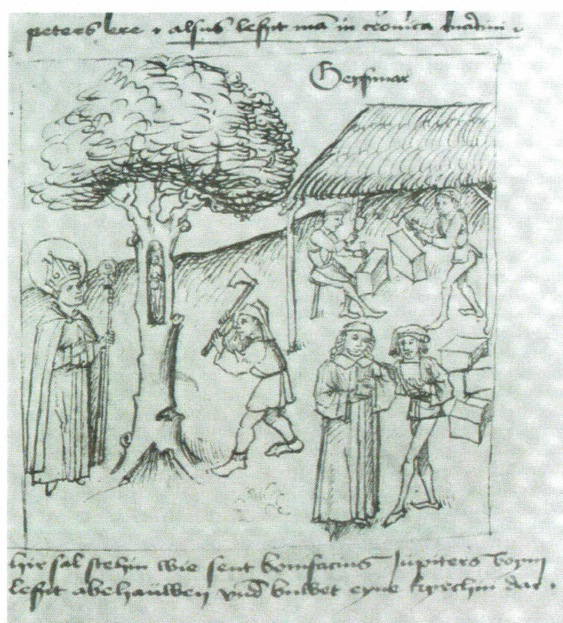 peters ere · alsus lesit mā in cronica
Geysmar
hie sal stehin wie sent bonifacius Jupiters boym
lesit abehauwen vnd buwet eyne kyrchin dar ·